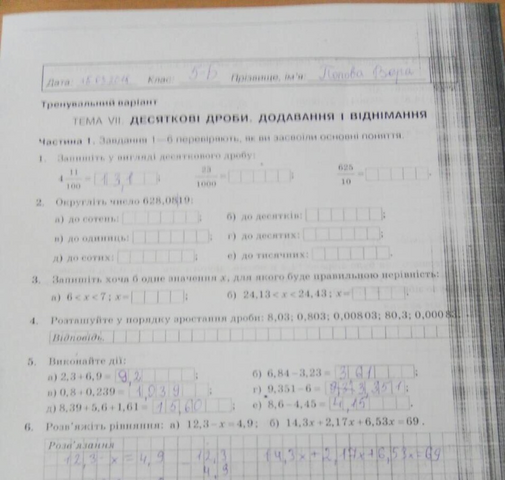 Дата: Клас: 5-Б Прізвище, ім'я: Попова Вера
Тренувальний варіант
ТЕМА VII. ДЕСЯТКОВІ ДРОБИ. ДОДАВАННЯ І ВІДНІМАННЯ
Частина 1. Завдання 1—6 перевіряють, як ви засвоїли основні поняття.
1. Запишіть у вигляді десяткового дробу:
4 11/100 = ; 23/1000 = ; 625/10 = .
2. Округліть число 628,0819:
а) до сотень: ; б) до десятків: ;
в) до одиниць: ; г) до десятих: ;
д) до сотих: ; е) до тисячних: .
3. Запишіть хоча б одне значення x, для якого буде правильною нерівність:
а) 6 < x < 7; x = ; б) 24,13 < x < 24,43; x =
4. Розташуйте у порядку зростання дроби: 8,03; 0,803; 0,00803; 80,3;
Відповідь.
5. Виконайте дії:
а) 2,3 + 6,9 = 9,2 ; б) 6,84 − 3,23 = 3,61 ;
в) 0,8 + 0,239 = 1,039 ; г) 9,351 − 6 = ;
д) 8,39 + 5,6 + 1,61 = 15,60 ; е) 8,6 − 4,45 = 4,15 .
6. Розв'яжіть рівняння: а) 12,3 − x = 4,9; б) 14,3x + 2,17x + 6,53x = 69 .
Розв'язання
12,3 − x = 4,9 12,3 14,3x + 2,17x + 6,53x = 69
4,9